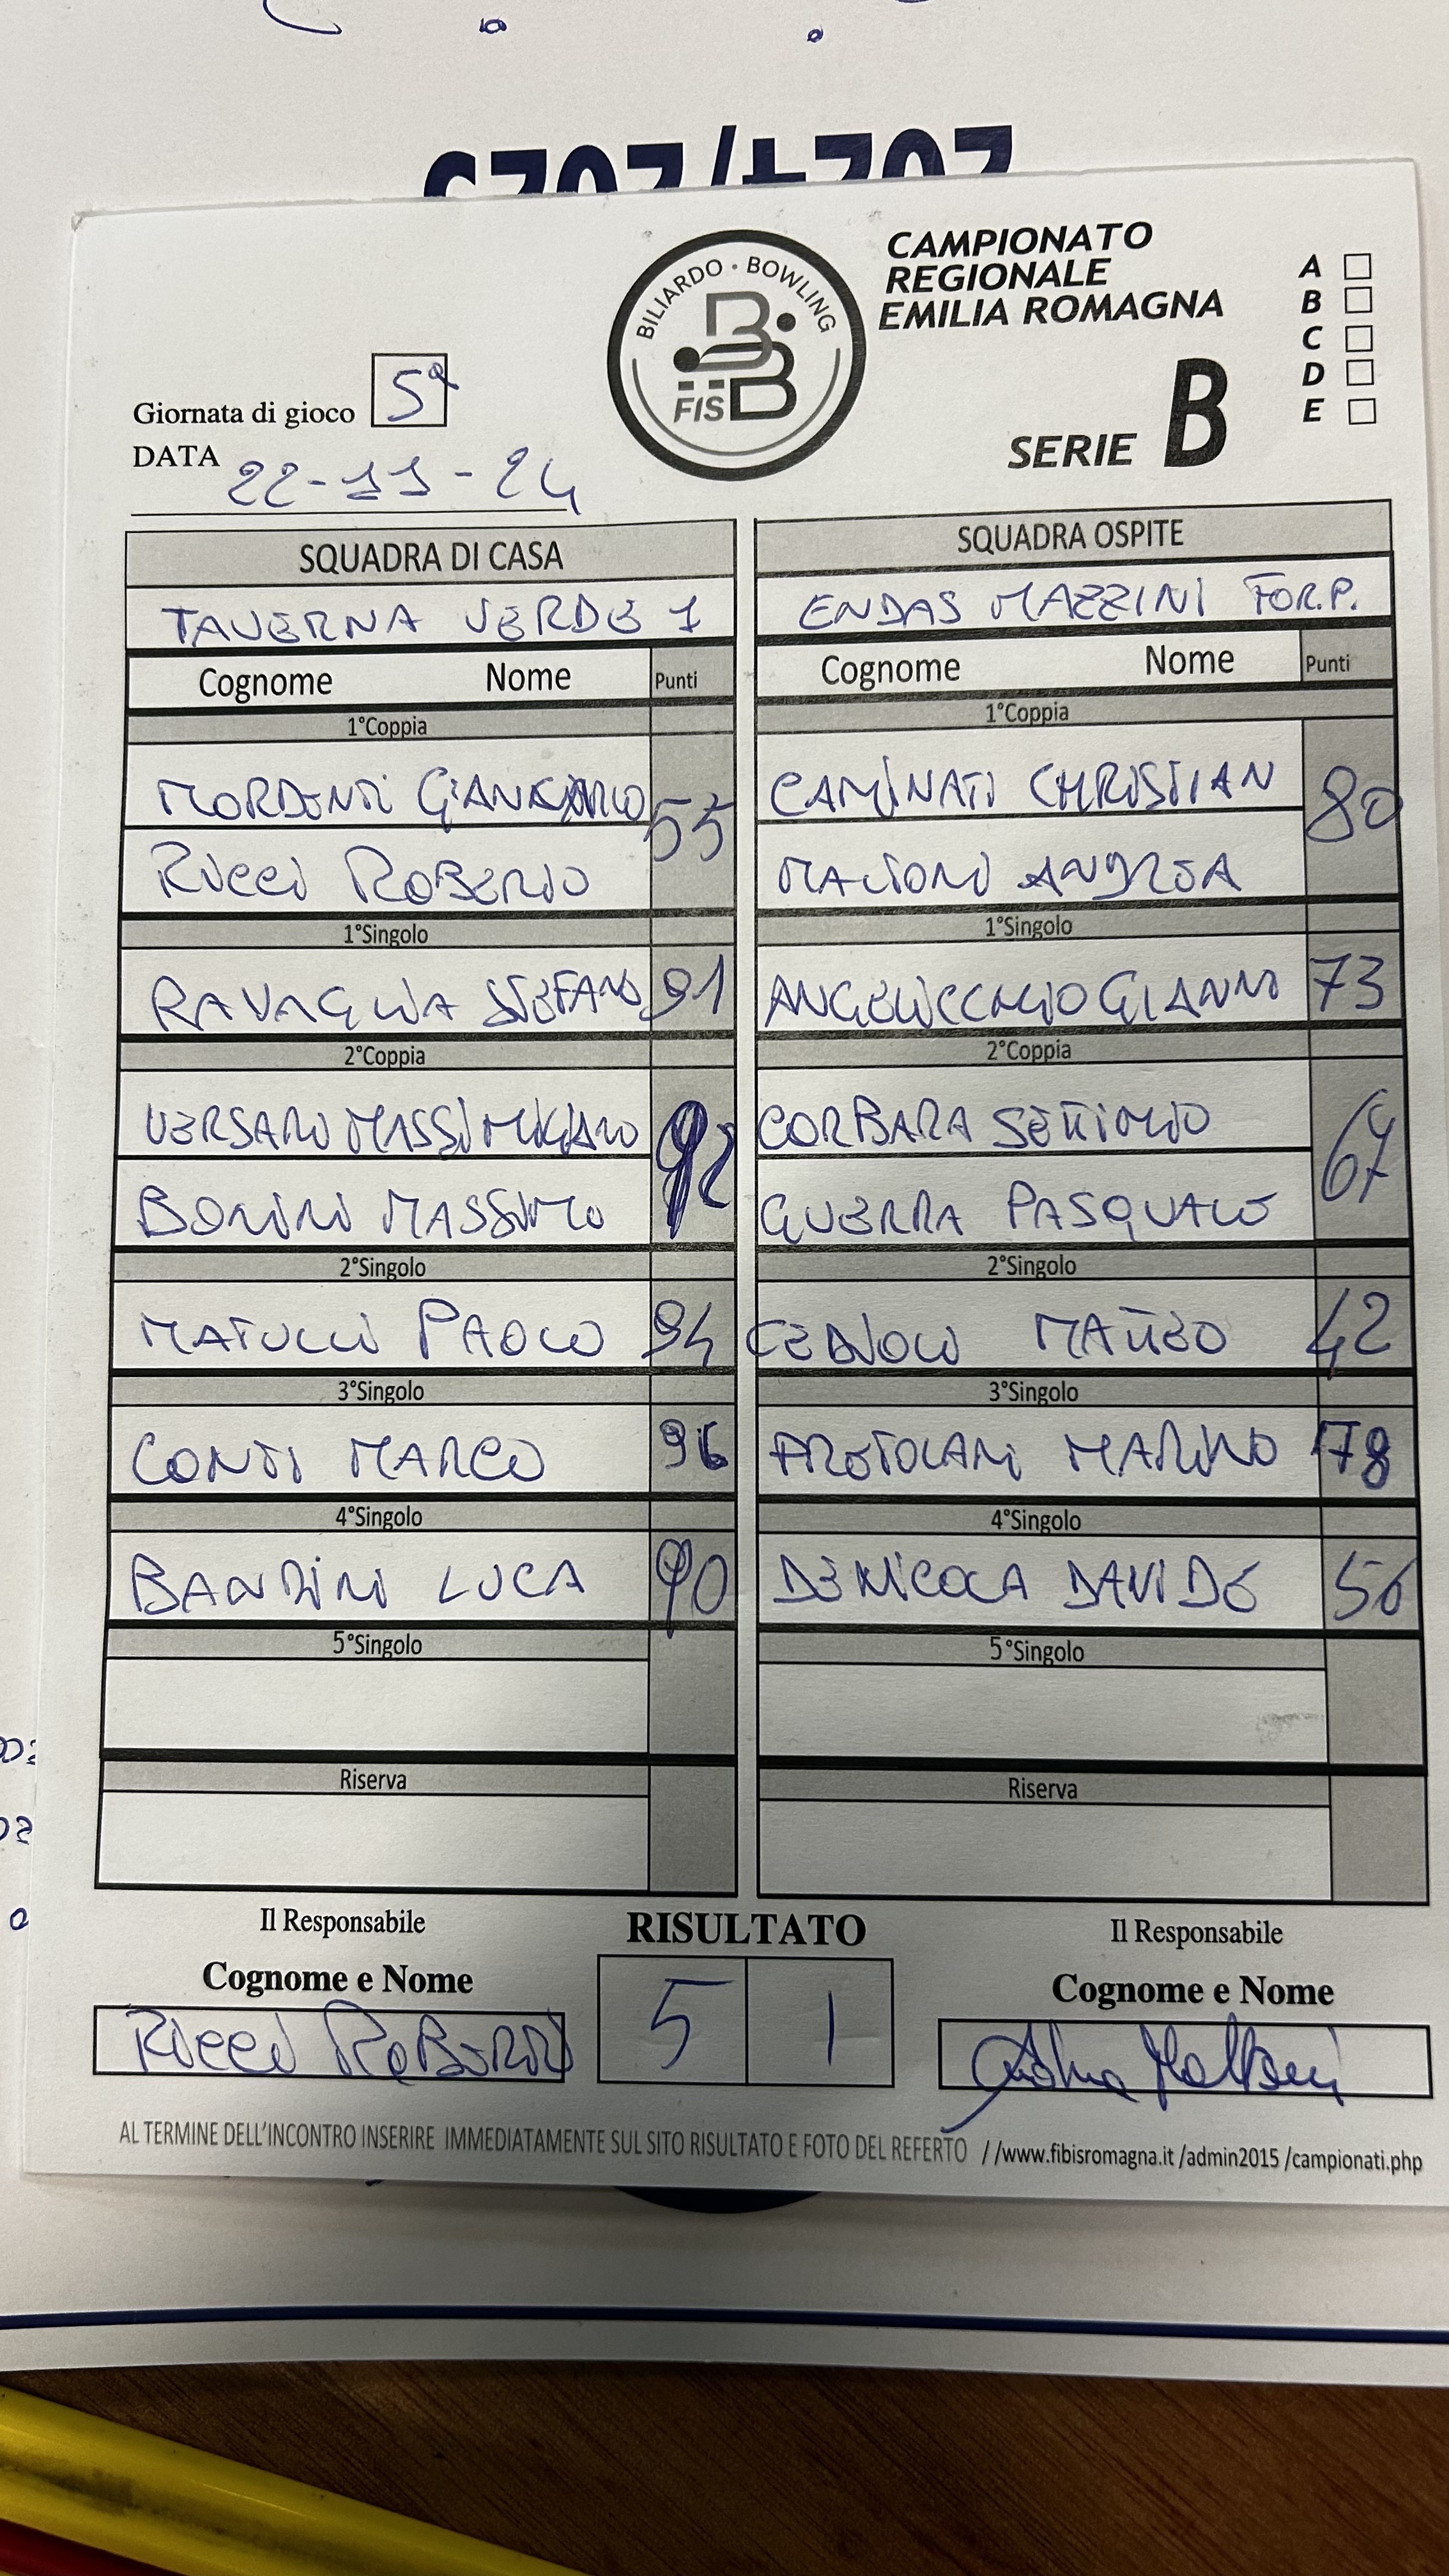 2024/2025
BILIARDO · BOWLING
FISBB
CAMPIONATO
REGIONALE
EMILIA ROMAGNA
SERIE B
A
B
C
D
E
Giornata di gioco 5ª
DATA 22-11-24
SQUADRA DI CASA
TAVERNA VERDE 1
Cognome Nome Punti
1°Coppia
MORDENTI GIANCARLO
55
RICCI ROBERTO
1°Singolo
RAVAGLIA STEFANO 91
2°Coppia
VERSARI MASSIMILIANO
92
BONINI MASSIMO
2°Singolo
MATUCCI PAOLO 94
3°Singolo
CONTI MARCO 96
4°Singolo
BANDINI LUCA 90
5°Singolo
Riserva
SQUADRA OSPITE
ENDAS MAZZINI FOR.P.
Cognome Nome Punti
1°Coppia
CAMINATI CHRISTIAN
80
MALTONI ANDREA
1°Singolo
ANGELICCHIO GIANNI 73
2°Coppia
CORBARA SETTIMIO
67
GUERRA PASQUALE
2°Singolo
CEDIOLI MATTEO 42
3°Singolo
MARINO 78
4°Singolo
DENICOLA DAVIDE 56
5°Singolo
Riserva
Il Responsabile
Cognome e Nome
RICCI ROBERTO
RISULTATO
5 1
Il Responsabile
Cognome e Nome
AL TERMINE DELL'INCONTRO INSERIRE IMMEDIATAMENTE SUL SITO RISULTATO E FOTO DEL REFERTO //www.fibisromagna.it /admin2015 /campionati.php